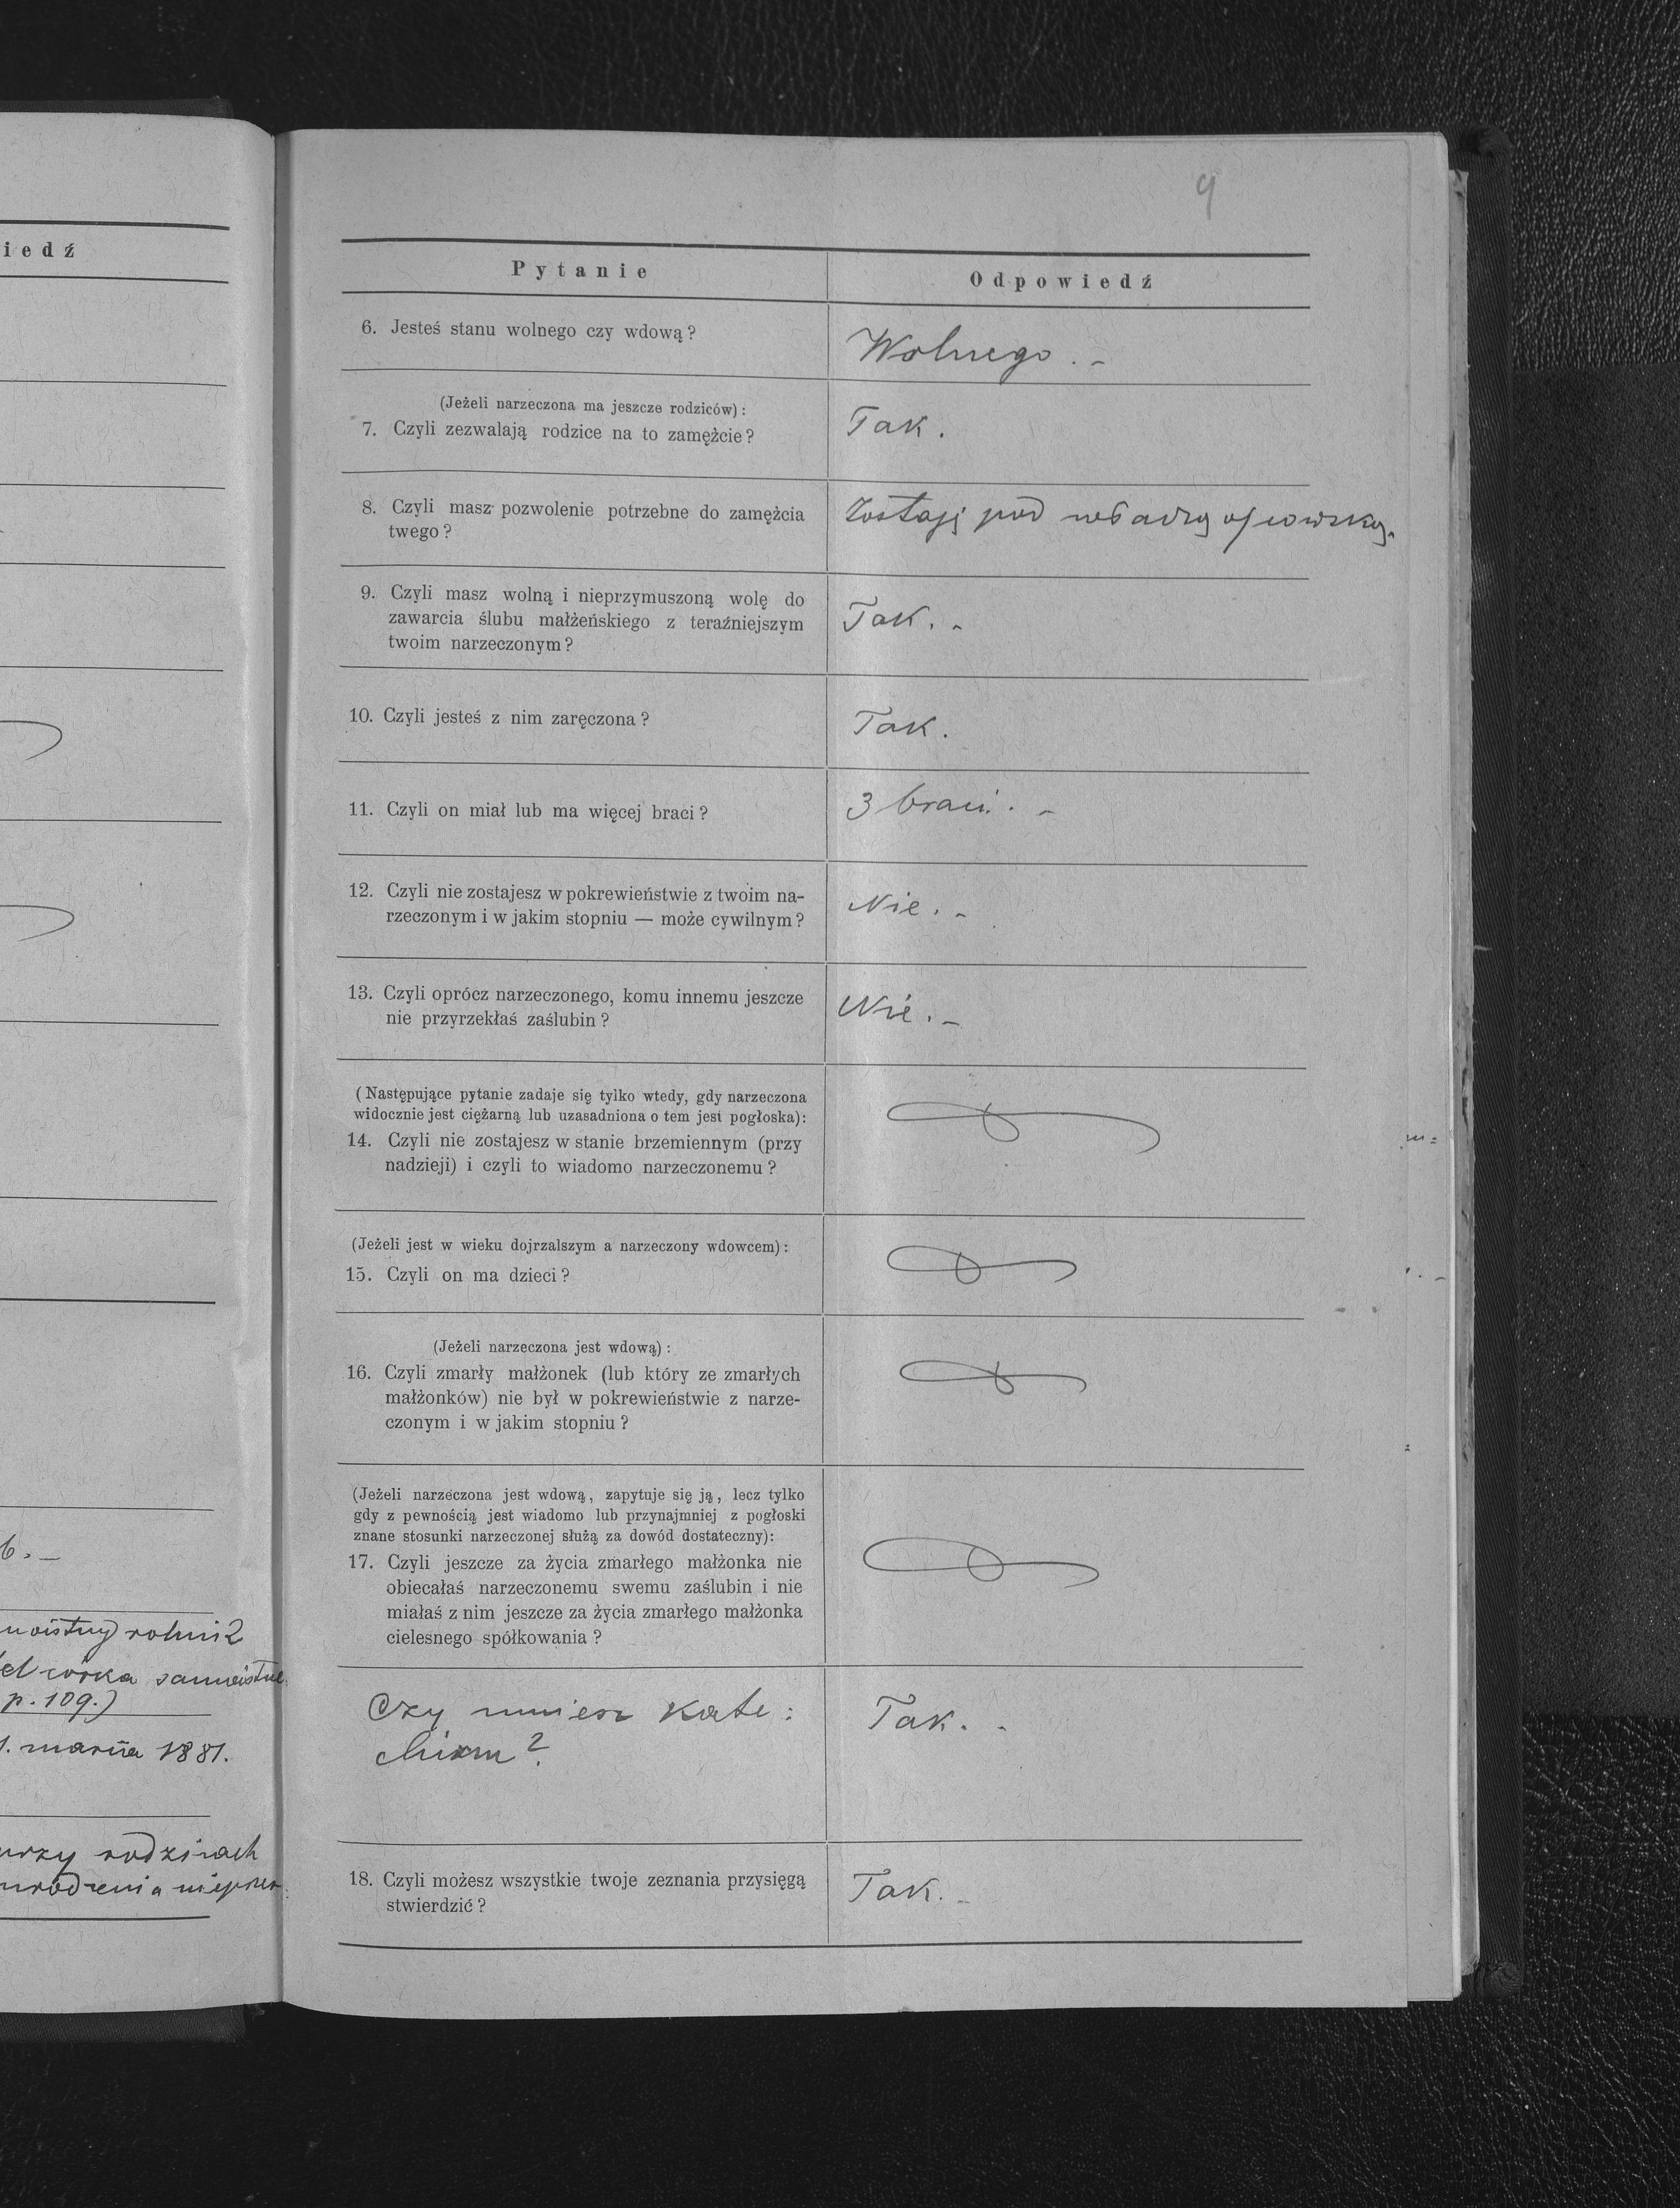 iedź
6. –
rolnik
córka samoistne
p. 109.)
1. marca 1881.
przy rodzicach
urodzenia nieprzer
9
Pytanie
Odpowiedź
6. Jesteś stanu wolnego czy wdową?
Wolnego. –
(Jeżeli narzeczona ma jeszcze rodziców):
7. Czyli zezwalają rodzice na to zamężcie?
Tak.
8. Czyli masz pozwolenie potrzebne do zamężcia
twego?
Zostaję pod władzą ojcowską.
9. Czyli masz wolną i nieprzymuszoną wolę do
zawarcia ślubu małżeńskiego z teraźniejszym
twoim narzeczonym?
Tak. –
10. Czyli jesteś z nim zaręczona?
Tak.
11. Czyli on miał lub ma więcej braci?
3 braci. –
12. Czyli nie zostajesz w pokrewieństwie z twoim na-
rzeczonym i w jakim stopniu — może cywilnym?
Nie. –
13. Czyli oprócz narzeczonego, komu innemu jeszcze
nie przyrzekłaś zaślubin?
Nie. –
(Następujące pytanie zadaje się tylko wtedy, gdy narzeczona
widocznie jest ciężarną lub uzasadniona o tem jest pogłoska):
14. Czyli nie zostajesz w stanie brzemiennym (przy
nadzieji) i czyli to wiadomo narzeczonemu?
(Jeżeli jest w wieku dojrzalszym a narzeczony wdowcem):
15. Czyli on ma dzieci?
(Jeżeli narzeczona jest wdową):
16. Czyli zmarły małżonek (lub który ze zmarłych
małżonków) nie był w pokrewieństwie z narze-
czonym i w jakim stopniu?
(Jeżeli narzeczona jest wdową, zapytuje się ją, lecz tylko
gdy z pewnością jest wiadomo lub przynajmniej z pogłoski
znane stosunki narzeczonej służą za dowód dostateczny):
17. Czyli jeszcze za życia zmarłego małżonka nie
obiecałaś narzeczonemu swemu zaślubin i nie
miałaś z nim jeszcze za życia zmarłego małżonka
cielesnego spółkowania?
Czy umiesz kate:
chizm?
Tak. –
18. Czyli możesz wszystkie twoje zeznania przysięgą
stwierdzić?
Tak. –